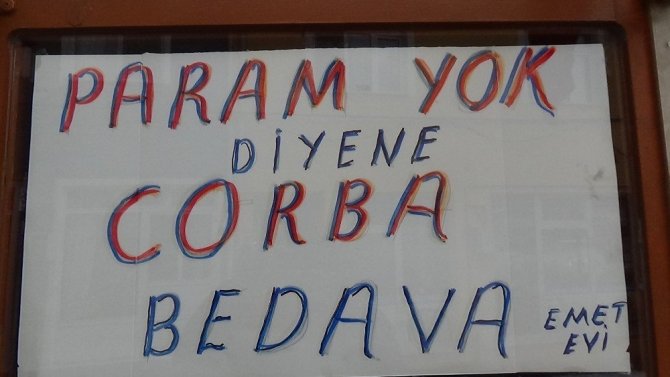 PARAM YOK
DİYENE
CORBA
BEDAVA
EMET
EVİ